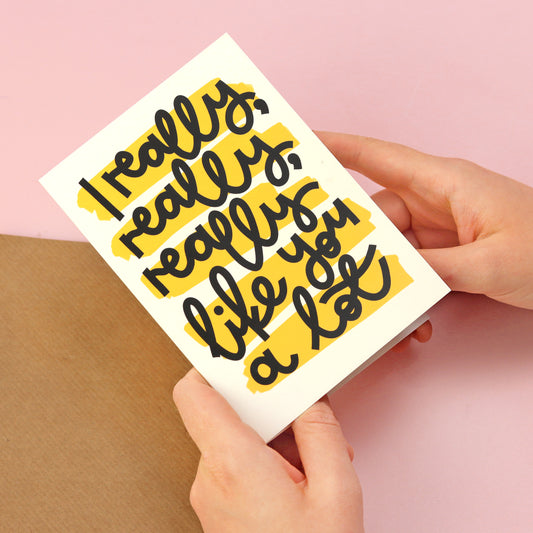 I really,
really,
really
like you
a lot